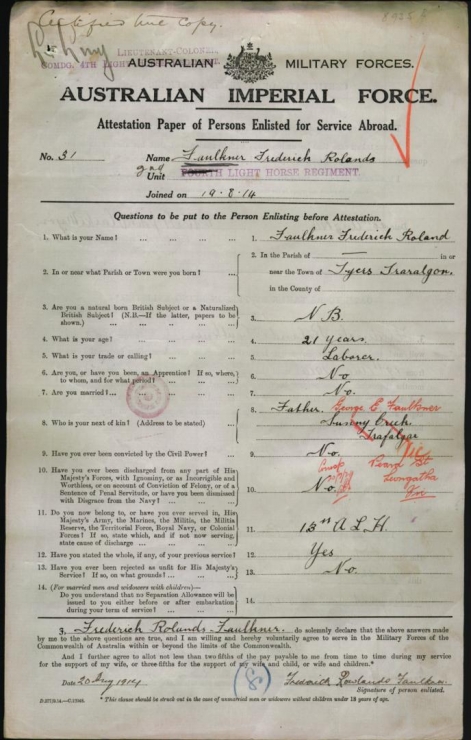 Certified true copy.
LIEUTENANT-COLONEL
COMDG. 4TH LIGHT HORSE
AUSTRALIAN MILITARY FORCES.
AUSTRALIAN IMPERIAL FORCE.
Attestation Paper of Persons Enlisted for Service Abroad.
No. 31 Name Faulkner Frederick Rolands
Unit FOURTH LIGHT HORSE REGIMENT.
Joined on 19.8.14
Questions to be put to the Person Enlisting before Attestation.
1. What is your Name? ... ... ... ... 1. Faulkner Frederick Roland
2. In or near what Parish or Town were you born? ... 2. In the Parish of — in or
near the Town of Tyers Traralgon.
in the County of
3. Are you a natural born British Subject or a Naturalized
British Subject? (N.B.—If the latter, papers to be
shown.) ... ... ... ... 3. N.B.
4. What is your age? ... ... ... ... 4. 21 years.
5. What is your trade or calling? ... ... ... 5. Laborer.
6. Are you, or have you been, an Apprentice? If so, where,
to whom, and for what period? ... ... ... 6. No
7. Are you married? ... ... ... ... 7. No.
8. Who is your next of kin? (Address to be stated) ... 8. Father. George E Faulkner
Sunny Creek
Trafalgar
9. Have you ever been convicted by the Civil Power? ... 9. No.
Peart St
Leongatha
Vic
10. Have you ever been discharged from any part of His
Majesty's Forces, with Ignominy, or as Incorrigible and
Worthless, or on account of Conviction of Felony, or of a
Sentence of Penal Servitude, or have you been dismissed
with Disgrace from the Navy? ... ... 10. No.
11. Do you now belong to, or have you ever served in, His
Majesty's Army, the Marines, the Militia, the Militia
Reserve, the Territorial Force, Royal Navy, or Colonial
Forces? If so, state which, and if not now serving,
state cause of discharge ... ... ... 11. 13th A L H.
12. Have you stated the whole, if any, of your previous service? 12. Yes
13. Have you ever been rejected as unfit for His Majesty's
Service? If so, on what grounds? ... ... 13. No.
14. (For married men and widowers with children)—
Do you understand that no Separation Allowance will be
issued to you either before or after embarkation
during your term of service? ... ... ... 14.
3. Frederick Rolands Faulkner do solemnly declare that the above answers made
by me to the above questions are true, and I am willing and hereby voluntarily agree to serve in the Military Forces of the
Commonwealth of Australia within or beyond the limits of the Commonwealth.
And I further agree to allot not less than two-fifths of the pay payable to me from time to time during my service
for the support of my wife, or three-fifths for the support of my wife and child, or wife and children.*
Date 20 Aug 1914 Frederick Rowlands Faulkner
Signature of person enlisted.
* This clause should be struck out in the case of unmarried men or widowers without children under 18 years of age.